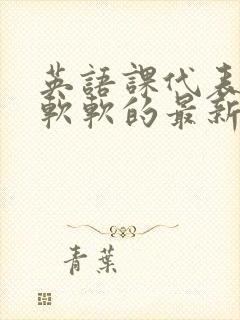 英語課代表
軟軟的最新
青葉